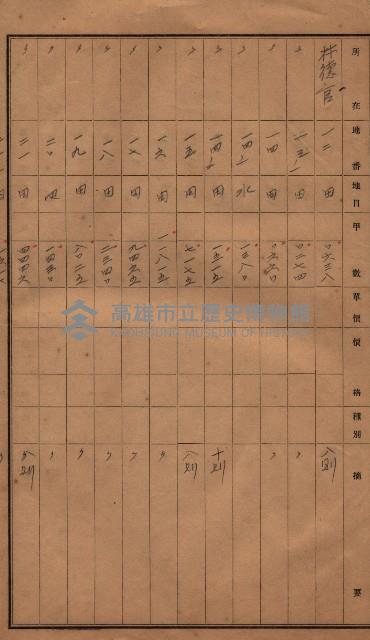 所在 地番 地目 甲數 單價 價格 種別 摘要
林德官 一二 田 〇六三八 八則
〃 一三ノ一 田 〇二七四 〃
〃 一四 田 〇六六〇 〃
〃 一四ノ二 水 一三八〇
〃 田 一三一五 十則
〃 一五 田 七一七五 八則
〃 一六 田 一一八一五 〃
〃 一七 田 九四六五 〃
〃 一八 田 二三四〇 〃
〃 一九 田 八〇二五 〃
〃 二〇 田 一四五〇 〃
〃 二一 田 四四四六 八則
高雄市立歷史博物館
KAOHSIUNG MUSEUM OF HISTORY